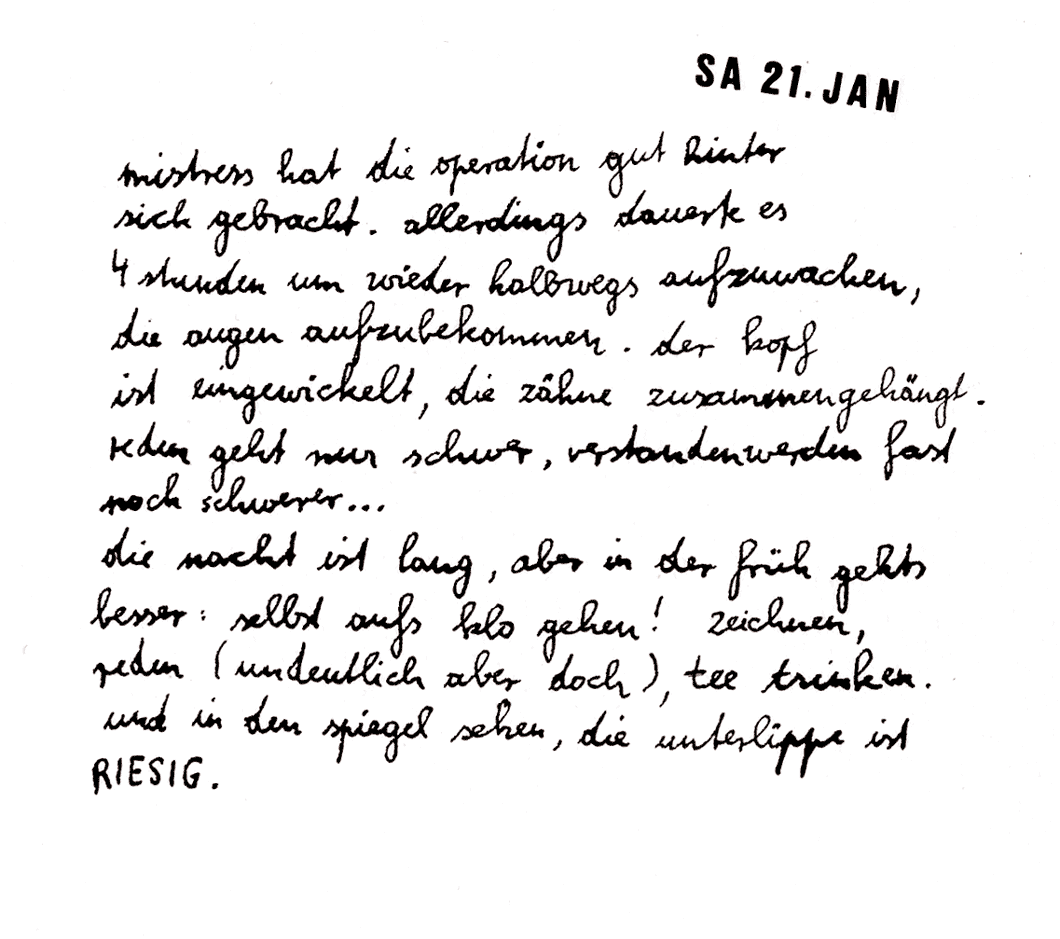 SA 21. JAN
mistress hat die operation gut hinter
sich gebracht. allerdings dauerte es
4 stunden um wieder halbwegs aufzuwachen,
die augen aufzubekommen. der kopf
ist eingewickelt, die zähne zusammengehängt.
reden geht nur schwer, verstandenwerden fast
noch schwerer...
die nacht ist lang, aber in der früh gehts
besser: selbst aufs klo gehen! zeichnen,
reden (undeutlich aber doch), tee trinken.
und in den spiegel sehen, die unterlippe ist
RIESIG.